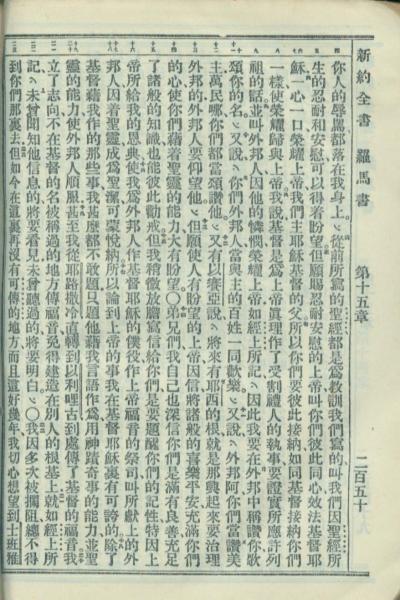 新約全書 羅馬書 第十五章 二百五十
你人的辱罵都落在我身上。從前所寫的聖經都是爲教訓我們寫的叫我們因聖經所
生的忍耐和安慰可以得着盼望但願賜忍耐安慰的上帝叫你們彼此同心效法基督耶
穌一心一口榮耀上帝我們主耶穌基督的父所以你們要彼此接納如同基督接納你們
一樣使榮耀歸與上帝我說基督是爲上帝眞理作了受割禮人的執事要證實所應許列
祖的話並叫外邦人因他的憐憫榮耀上帝如經上所記。因此我要在外邦中稱讚你歌
頌你的名。又說。你們外邦人當與主的百姓一同歡樂。又說。外邦阿你們當讚美
主萬民哪你們都當頌讚他。又有以賽亞說。將來有耶西的根就是那興起來要治理
外邦的外邦人要仰望他。但願使人有盼望的上帝因信將諸般的喜樂平安充滿你們
的心使你們藉着聖靈的能力大有盼望〇弟兄們我自己也深信你們是滿有良善充足
了諸般的知識也能彼此勸戒但我稍微放膽寫信給你們是要題醒你們的記性特因上
帝所給我的恩典使我爲外邦人作基督耶穌的僕役作上帝福音的祭司叫所獻上的外
邦人因着聖靈成爲聖潔可蒙悅納所以論到上帝的事我在基督耶穌裏有可誇的除了
基督藉我作的那些事我甚麼都不敢題只題他藉我言語作爲用神蹟奇事的能力並聖
靈的能力使外邦人順服甚至我從耶路撒冷直轉到以利哩古到處傳了基督的福音我
立了志向不在基督的名被稱過的地方傳福音免得建造在別人的根基上就如經上所
記。未曾聞知他信息的將要看見未曾聽過的將要明白。〇我因多次被攔阻總不得
到你們那裏去但如今在這裏再沒有可傳的地方而且這好幾年我切心想望到士班雅